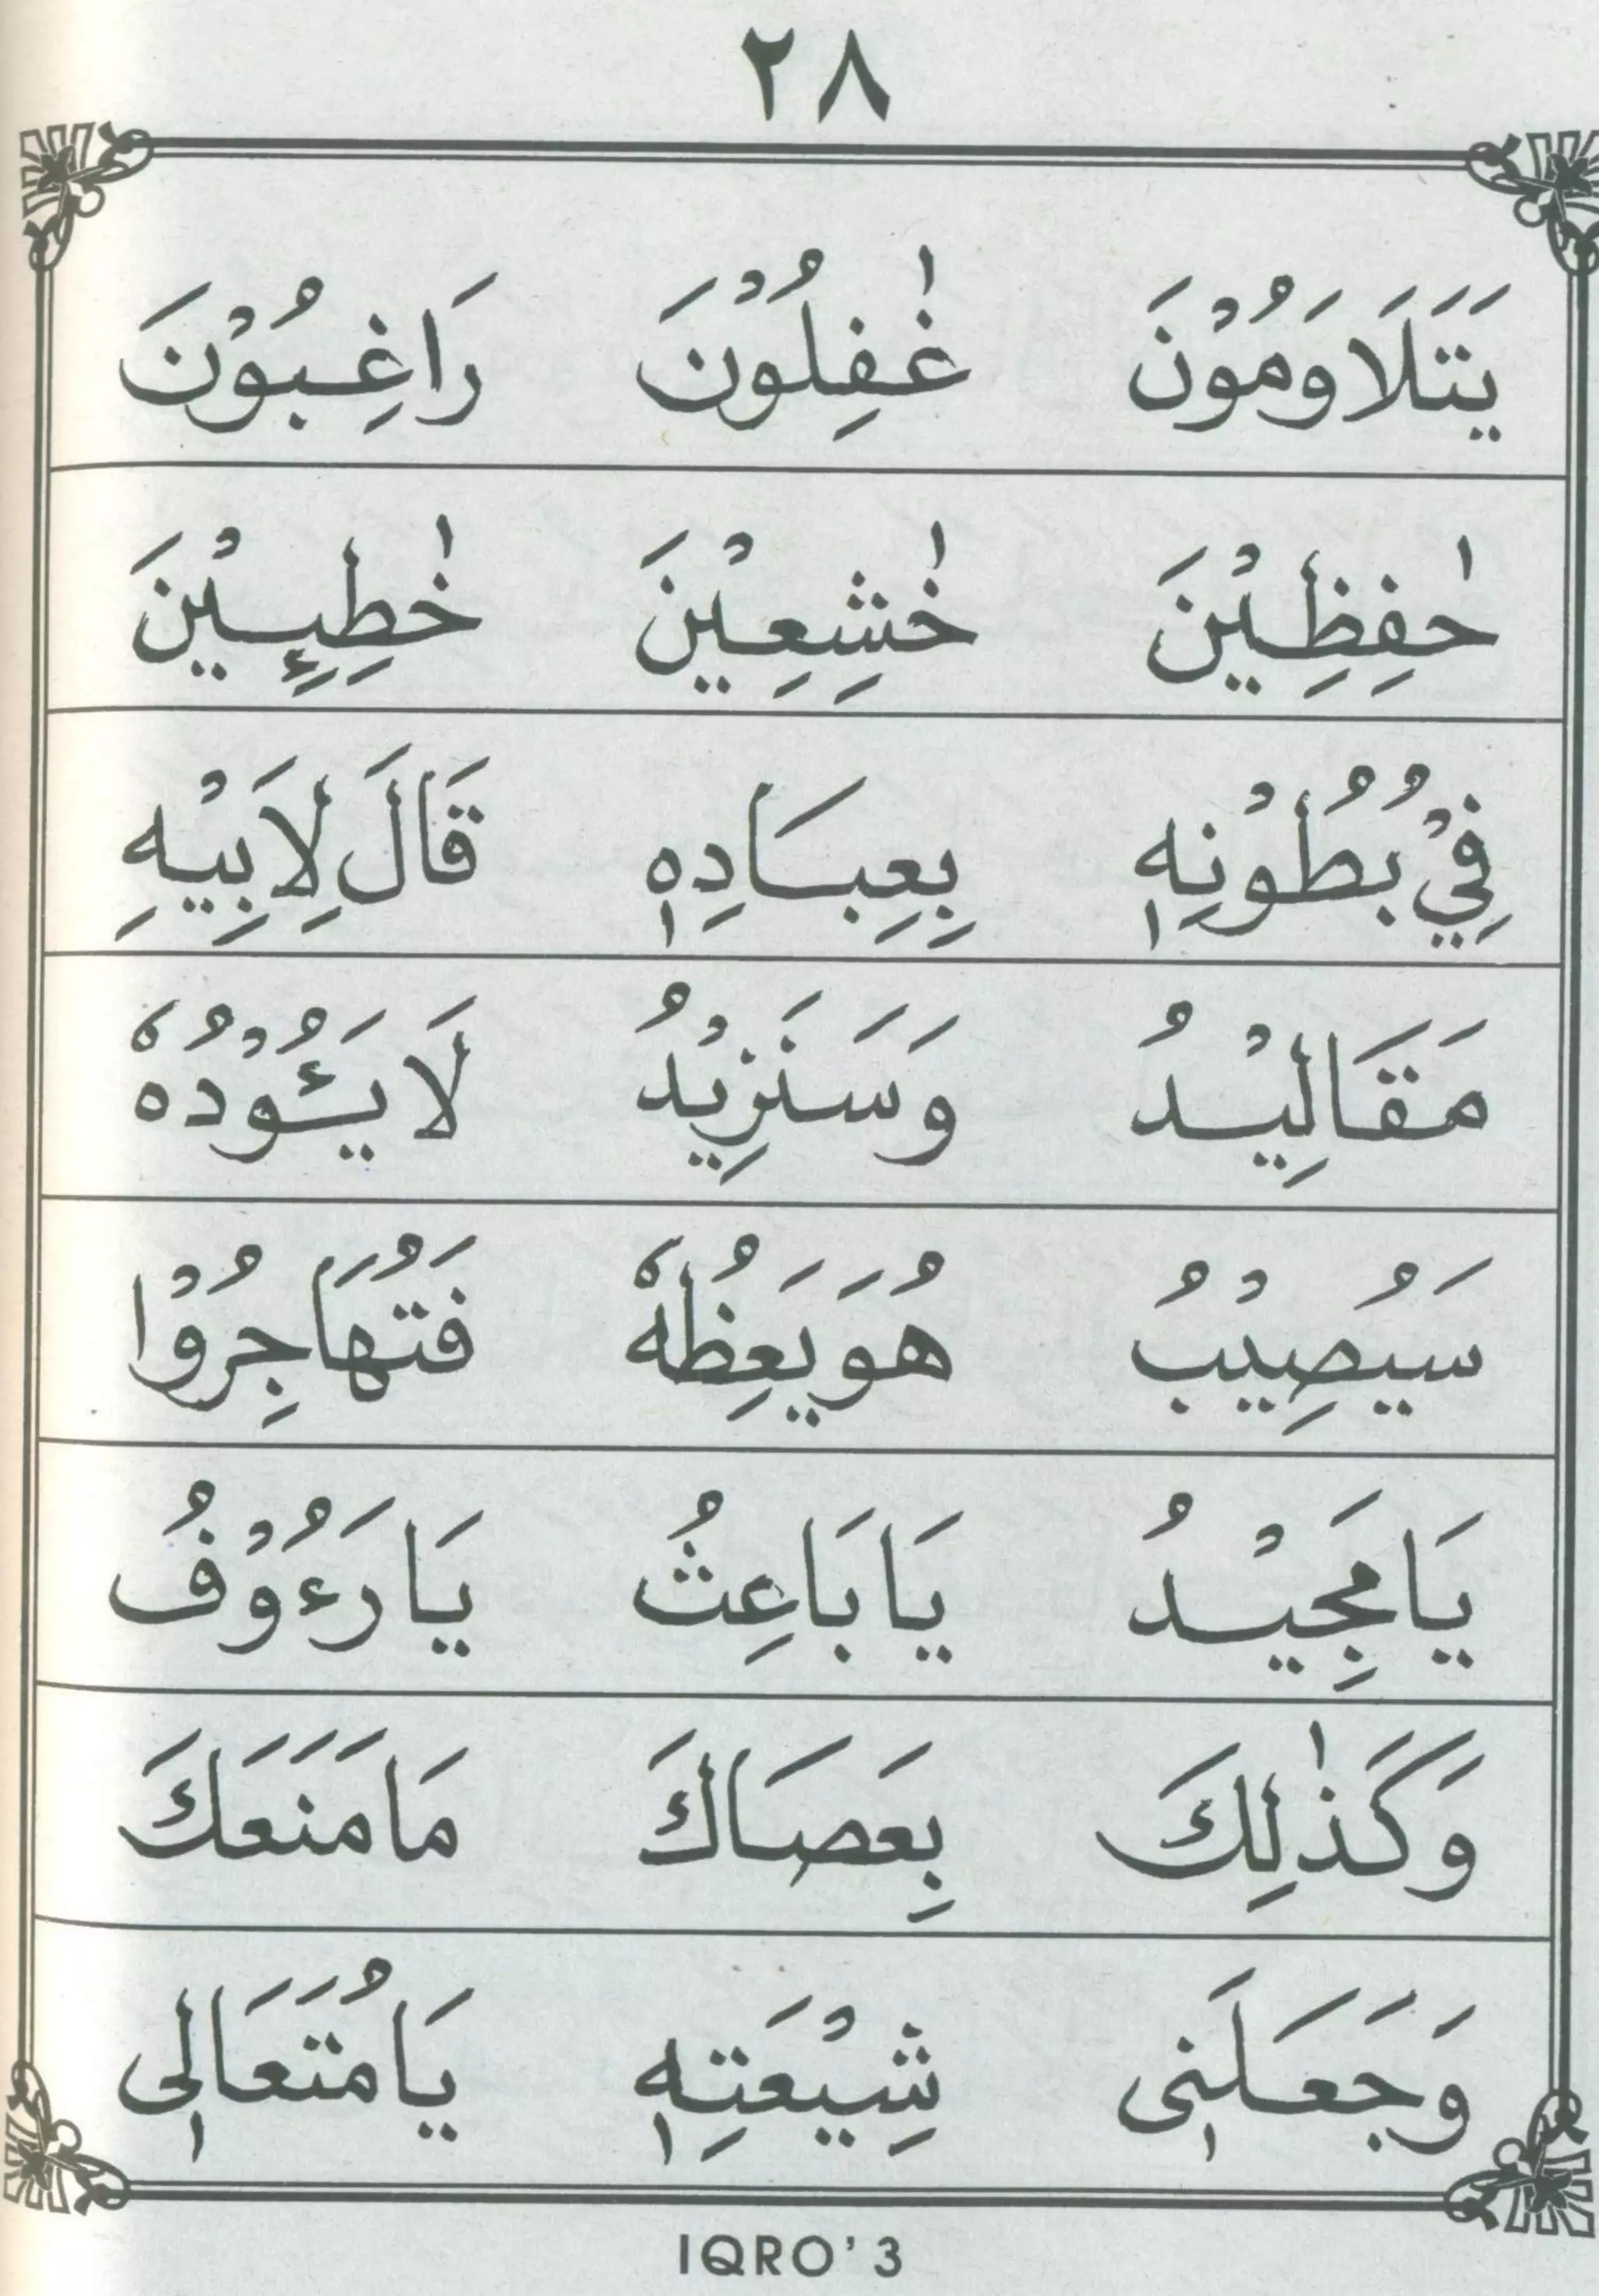 ٢٨
يَتَلَاوَمُوْنَ غٰفِلُوْنَ رَاغِبُوْنَ
حٰفِظِيْنَ خٰشِعِيْنَ خٰطِـِٕيْنَ
فِيْ بُطُوْنِهٖ بِعِبَادِهٖ قَالَ لِاَبِيْهِ
مَقَالِيْدُ وَسَنَزِيْدُ لَا يَـُٔوْدُهٗ
سَيُصِيْبُ هُوَ يَعِظُهٗ فَتُهَاجِرُوْا
يَا مَجِيْدُ يَا بَاعِثُ يَا رَءُوْفُ
وَكَذٰلِكَ بِعَصَاكَ مَا مَنَعَكَ
وَجَعَلَنِى شِيْعَتِهٖ يَا مُتَعَالِى
IQRO' 3